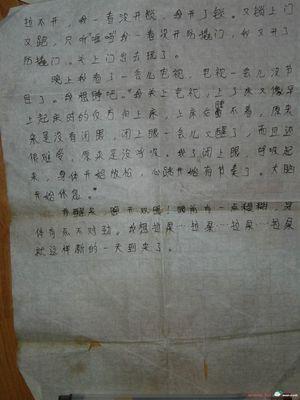 拉不开，我一看没开锁，我开了锁。又锁上门
又跑，只听嘭嘭我一看没开防撬门，我又开了
防撬门。关上门出去玩了。
晚上我看了一会儿电视，电视一会儿没节
目了。我想睡吧。我关上电视，上了床又像早
上起来时的反方向上床，上床后睡不着，原来
来是没有闭眼，闭上眼一会儿又醒了，而且还
很难受，原来是没呼吸。我了闭上眼，呼吸起
来，身体开始放松，心跳开始有节奏了。大脑
开始休息。
我醒来，睁开双眼！眼前有一点模糊，身
体有点不对劲。我想拉屎…拉屎…拉屎…拉屎
就这样新的一天到来了。